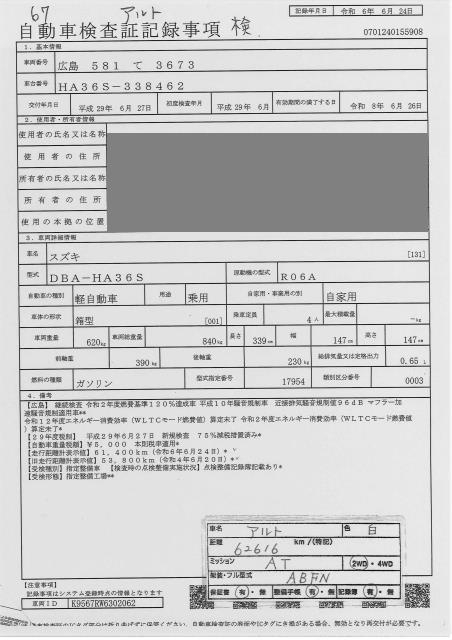 67 アルト
自動車検査証記録事項 検
記録年月日 令和 6年 6月 24日
0701240155908
1．基本情報
車両番号 広島 581 て 3673
車台番号 HA36S-338462
交付年月日 平成 29年 6月 27日 初度検査年月 平成 29年 6月 有効期間の満了する日 令和 8年 6月 26日
2．使用者・所有者情報
使用者の氏名又は名称
使用者の住所
所有者の氏名又は名称
所有者の住所
使用の本拠の位置
3．車両詳細情報
車名 スズキ [131]
型式 DBA-HA36S 原動機の型式 R06A
自動車の種別 軽自動車 用途 乗用 自家用・事業用の別 自家用
車体の形状 箱型 [001] 乗車定員 4人 最大積載量 -kg
車両重量 620kg 車両総重量 840kg 長さ 339cm 幅 147cm 高さ 147cm
前軸重 390kg 後軸重 230kg 総排気量又は定格出力 0.65 L
燃料の種類 ガソリン 型式指定番号 17954 類別区分番号 0003
4．備考
【広島】 継続検査 令和2年度燃費基準120％達成車 平成10年騒音規制車 近接排気騒音規制値96dB マフラー加
速騒音規制適用車**
令和12年度エネルギー消費効率（WLTCモード燃費値）算定未了 令和2年度エネルギー消費効率（WLTCモード燃費値
）算定未了*
【29年度税制】 平成29年6月27日 新規検査 75％減税措置済み*
【自動車重量税額】￥5,000 本則税率適用*
【走行距離計表示値】61,400km（令和6年6月24日）*
【旧走行距離計表示値】53,800km（令和4年6月20日）*
【受検種別】指定整備車 【検査時の点検整備実施状況】点検整備記録簿記載あり*
【受検形態】指定整備工場**
車名 アルト 色 白
距離 62616 km /(特記)
ミッション AT 2WD・4WD
架装・フル型式 ABFN
保証書 有・無 整備手帳 有・無 記録簿 有・無
【注意事項】
記録事項はシステム登録時点の情報となります
車両ID K9567RW6302062